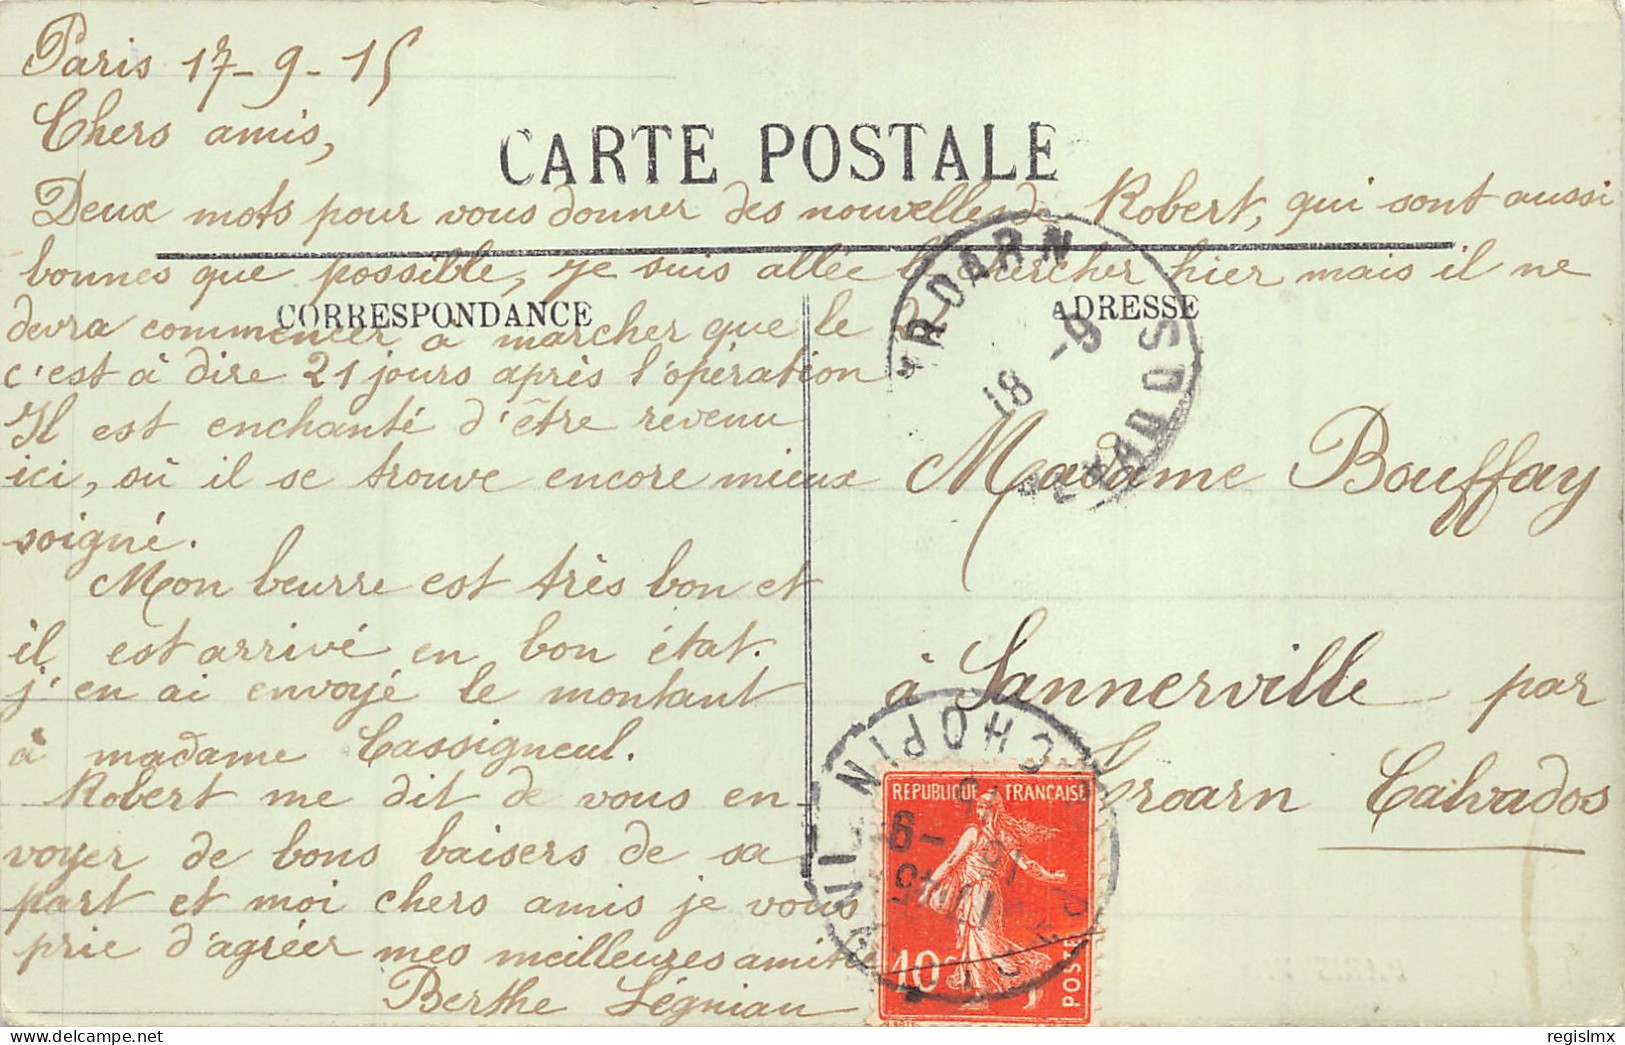 Paris 17-9-15
Chers amis,
CARTE POSTALE
Deux mots pour vous donner des nouvelles de Robert, qui sont aussi
bonnes que possible, je suis allée le chercher hier mais il ne
CORRESPONDANCE
devra commencer à marcher que le 22
c'est à dire 21 jours après l'opération
Il est enchanté d'être revenu
ici, où il se trouve encore mieux
soigné.
Mon beurre est très bon et
il est arrivé en bon état.
j'en ai envoyé le montant
à madame Cassigneul.
Robert me dit de vous en-
voyer de bons baisers de sa
part et moi chers amis je vous
prie d'agréer mes meilleures amitiés
Berthe Légnian
ADRESSE
TROARN
18 -9
CALVADOS
Madame Bouffay
à Sannerville par
Troarn Calvados
CHOPIN
17 45
REPUBLIQUE FRANÇAISE
10c
POSTES
regislmx